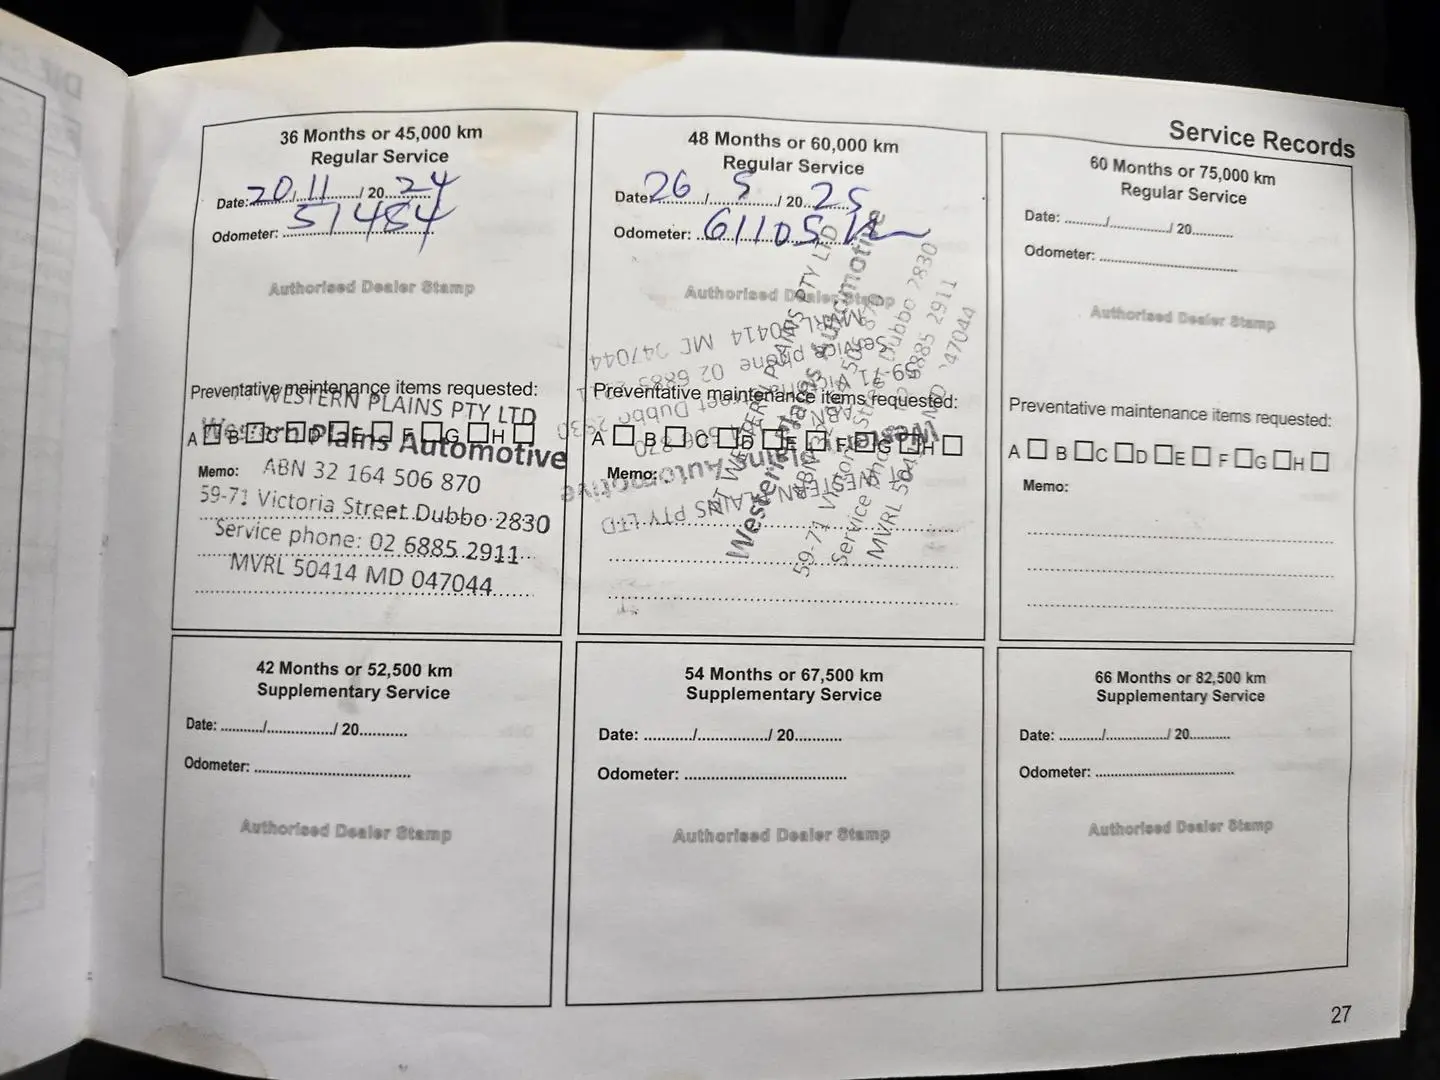 Service Records
36 Months or 45,000 km
Regular Service
Date: 20/11/2024
Odometer: 51484
Authorised Dealer Stamp
Preventative maintenance items requested:
WESTERN PLAINS PTY LTD
A B C D E F G H
Western Plains Automotive
Memo:
ABN 32 164 506 870
59-71 Victoria Street Dubbo 2830
Service phone: 02 6885 2911
MVRL 50414 MD 047044
48 Months or 60,000 km
Regular Service
Date: 26/5/2025
Odometer: 61105
Authorised Dealer Stamp
Preventative maintenance items requested:
A B C D E F G H
Memo:
60 Months or 75,000 km
Regular Service
Date: ........./.............../ 20...........
Odometer: .....................................
Authorised Dealer Stamp
Preventative maintenance items requested:
A B C D E F G H
Memo:
42 Months or 52,500 km
Supplementary Service
Date: ........./.............../ 20...........
Odometer: .....................................
Authorised Dealer Stamp
54 Months or 67,500 km
Supplementary Service
Date: ........./.............../ 20...........
Odometer: .....................................
Authorised Dealer Stamp
66 Months or 82,500 km
Supplementary Service
Date: ........./.............../ 20...........
Odometer: .....................................
Authorised Dealer Stamp
27